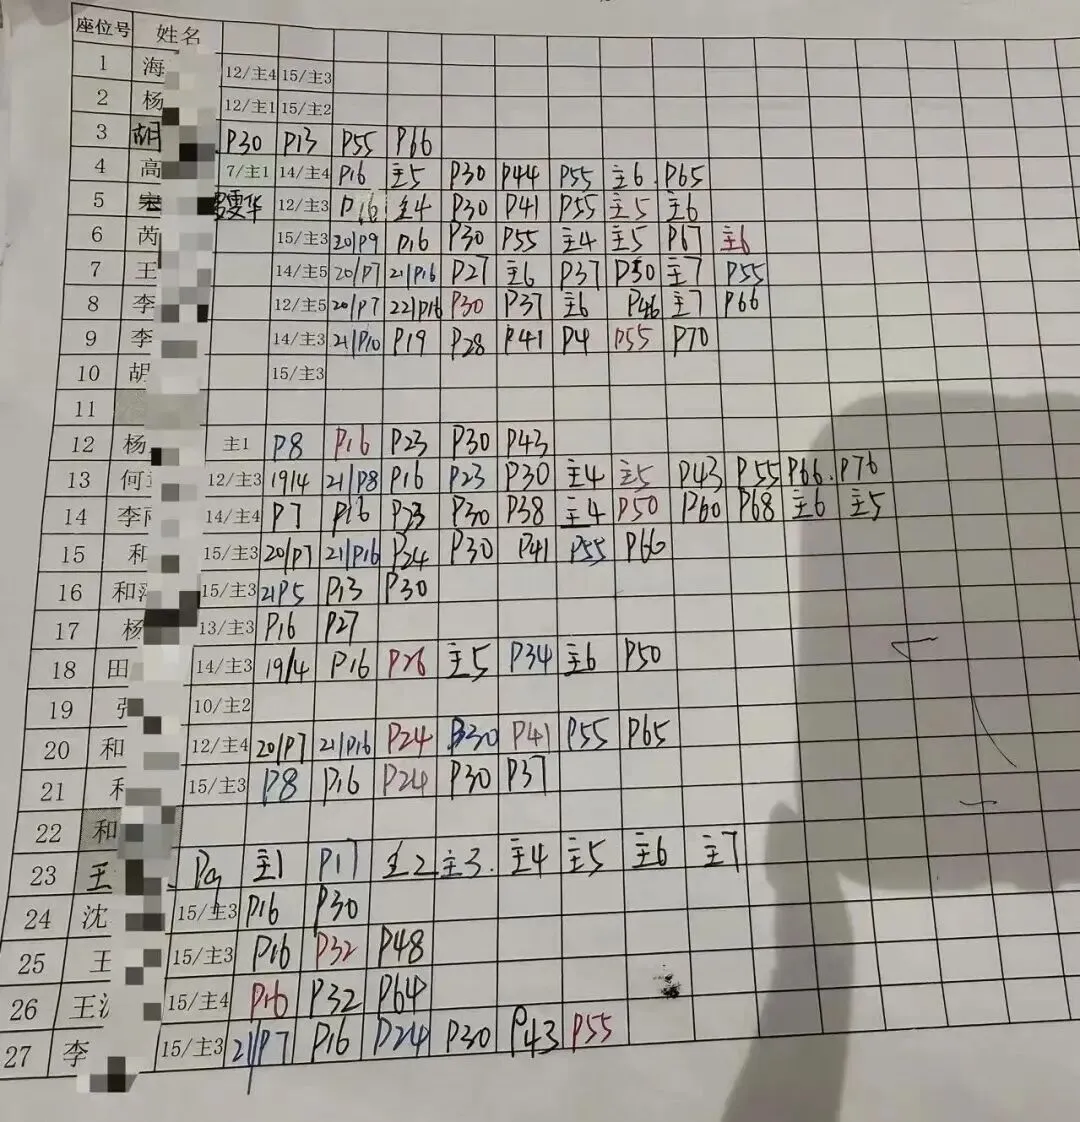 座位号 姓名
1 海 12/主4 15/主3
2 杨 12/主1 15/主2
3 胡 P30 P13 P55 P66
4 高 7/主1 14/主4 P16 主5 P30 P44 P55 主6 P65
5 12/主3 P16 主4 P30 P41 P55 主5 主6
6 芮 15/主3 20/P9 P16 P30 P55 主4 主5 P67 主6
7 王 14/主5 20/P7 21/P16 P27 主6 P37 P50 主7 P55
8 李 12/主5 20/P7 22/P16 P30 P37 主6 P46 主7 P66
9 李 14/主3 21/P10 P19 P28 P41 P4 P55 P70
10 胡 15/主3
11
12 杨 主1 P8 P16 P23 P30 P43
13 何 12/主3 19/4 21/P8 P16 P23 P30 主4 主5 P43 P55 P66 P76
14 李 14/主4 P7 P16 P23 P30 P38 主4 P50 P60 P68 主6 主5
15 和 15/主3 20/P7 21/P16 P24 P30 P41 P55 P66
16 和 15/主3 21P5 P13 P30
17 杨 13/主3 P16 P27
18 田 14/主3 19/4 P16 P26 主5 P34 主6 P50
19 10/主2
20 和 12/主4 20/P7 21/P16 P24 P30 P41 P55 P65
21 15/主3 P8 P16 P24 P30 P37
22 和
23 王 P9 主1 P17 主2 主3. 主4 主5 主6 主7
24 沈 15/主3 P16 P30
25 王 15/主3 P16 P32 P48
26 王 15/主4 P16 P32 P64
27 李 15/主3 21/P7 P16 P24 P30 P43 P55